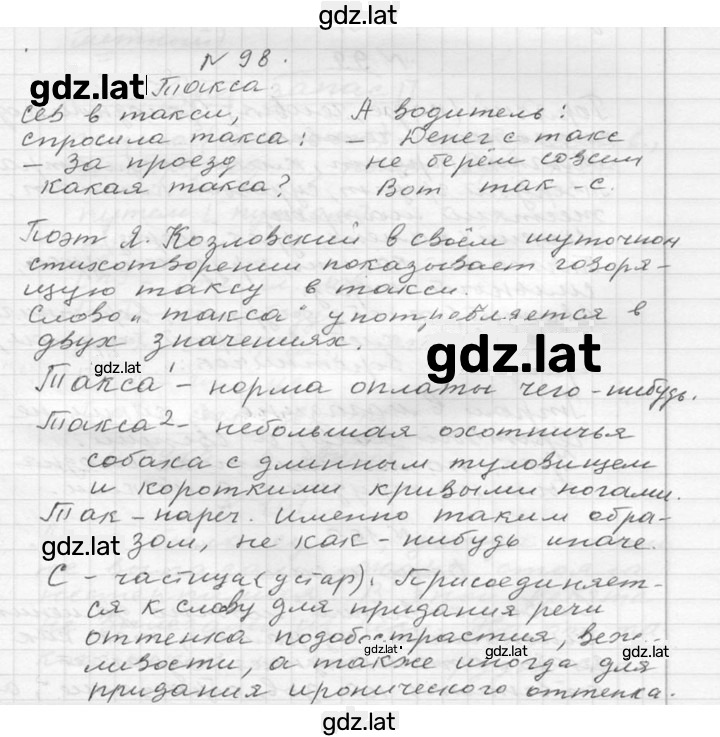 gdz.lat
N 98.
gdz.lat Такса
Сев в такси,
спросила такса:
– За проезд
какая такса?
А водитель:
– Денег с такс
не берём совсем
Вот так-с.
Поэт Я. Козловский в своём шуточном
стихотворении показывает говоря-
щую таксу в такси.
Слово „такса“ употребляется в
двух значениях.
gdz.lat
gdz.lat
Такса¹ – норма оплаты чего-нибудь.
Такса² – небольшая охотничья
собака с длинным туловищем
и короткими кривыми ногами.
Так – нареч. Именно таким обра-
gdz.lat зом, не как-нибудь иначе.
С – частица (устар). Присоединяет-
ся к слову для придания речи
оттенка подобострастия, веж-
gdz.lat gdz.lat
ливости, а также иногда для
придания иронического оттенка.
gdz.lat